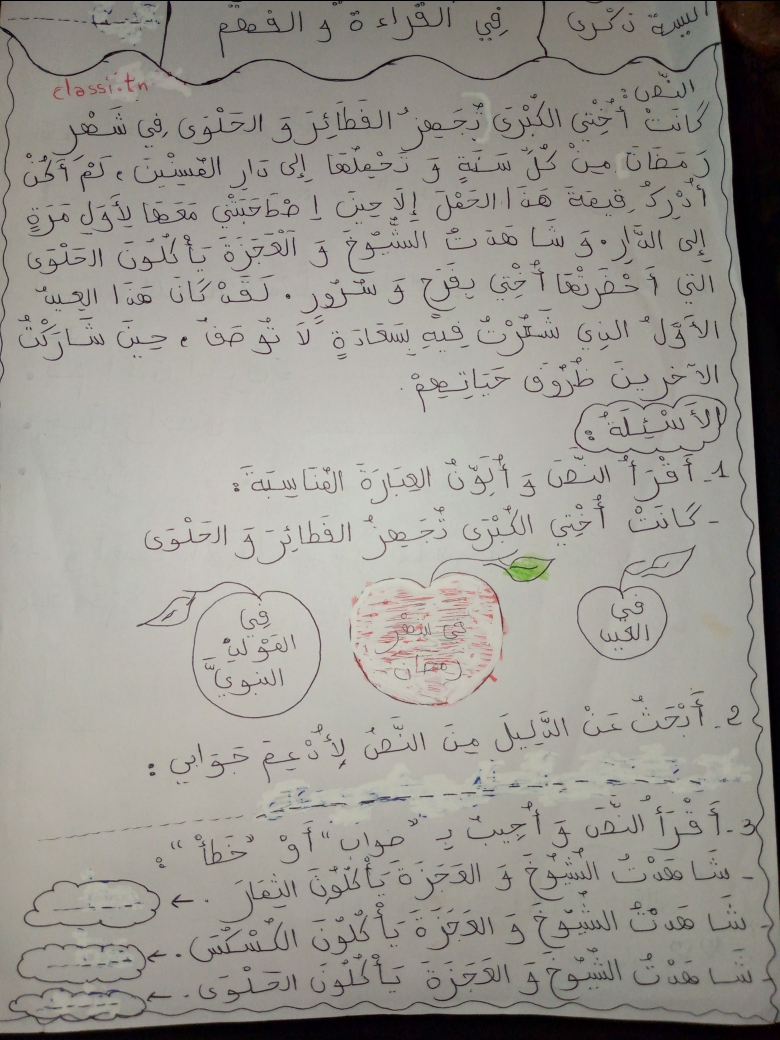 السنة ذكرى
في القراءة و الفهم
classi.tn
النص:
كَانَتْ أُخْتِي الكُبْرَى تُجَهِزُ الفَطَائِرَ وَ الحَلْوَى فِي شَهْرِ
رَمَضَانَ مِنْ كُلِّ سَنَةٍ وَ تَحْمِلُهَا إِلَى دَارِ المُسِنِّينَ ، لَمْ أَكُنْ
أُدْرِكُ قِيمَةَ هَذَا الحَفْلَ إِلَّا حِينَ اِصْطَحَبَتْنِي مَعَهَا لِأَوَلِ مَرَةٍ
إِلَى الدَّارِ. وَ شَاهَدْتُ الشُّيُوخَ وَ العَجَزَةَ يَأْكُلُونَ الحَلْوَى
التِي أَحْضَرَتْهَا أُخْتِي بِفَرَحٍ وَ سُرُورٍ. لَقَدْ كَانَ هَذَا العِيدُ
الأَوَّلُ الذِي شَعُرْتُ فِيهِ بِسَعَادَةٍ لَا تُوصَفُ ، حِينَ شَارَكْتُ
الآخرينَ ظُرُوفَ حَيَاتِهِمْ.
الأَسْئِلَةُ :
1. أَقْرَأُ النَّصَ وَ أُلَوِّنُ العِبَارَةَ المُنَاسِبَةَ :
- كَانَتْ أُخْتِي الكُبْرَى تُجَهِزُ الفَطَائِرَ وَ الحَلْوَى
في العيد
في شهر رمضان
فِي المَوْلِدِ النبويِّ
2. أَبْحَثُ عَنْ الدَّلِيلَ مِنَ النَّصِّ لِأُدْعِمَ جَوَابي :
3. أَقْرَأُ النَّصَ وَ أُجِيبُ بِـ "صواب" أَوْ "خَطَأْ" :
- شَاهَدْتُ الشُّيُوخَ وَ العَجَزَةَ يَأْكُلُونَ الثِمَارَ . ←
- شَاهَدْتُ الشُّيُوخَ وَ العَجَزَةَ يَأْكُلُونَ الكُسْكُسَ . ←
- شَاهَدْتُ الشُّيُوخَ وَ العَجَزَةَ يَأْكُلُونَ الحَلْوَى . ←